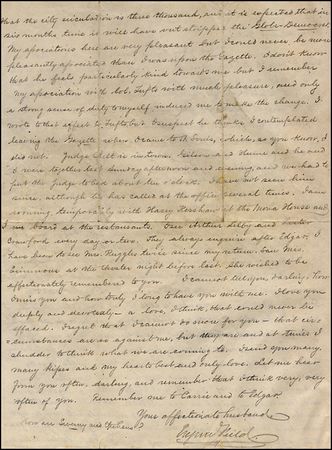 that the city circulation is three thousand, and it is expected that in
six months time it will have outstripped the Globe-Democrat.
My associations here are very pleasant but I could never be more
pleasantly associated than I was upon the Gazette. I don't know
that he feels particularly kind toward me but I remember
my association with Col. Tufts with much pleasure, and only
a strong sense of duty to myself induced me to make the change. I
wrote to that effect to Tufts but I suspect he thinks I contemplated
leaving the Gazette when I came to St. Louis, which, as you know, I
did not. Judge is in town. Gibson and
were together last Sunday afternoon and evening, and we had to
put the Judge to bed about ten o'clock. I have not seen him
since, although he has called at the office several times. I am
rooming, temporarily with Harry Kershaw at the Mona House and
I am board at the restaurants. I see Arthur Selby and
Crawford every day or two. They always enquire after Edgar. I
have been to see Mrs. Ruggles twice since my return. Mrs.
was at the theater night before last. She wished to be
affectionately remembered to you. I cannot tell you, darling, how
I miss you and how truly I long to have you with me. I love you
deeply and devotedly - a love, I think, that could never be
effaced. I regret that I cannot do more for you - that cir-
cumstances are so against me, but they are and at times I
shudder to think what we are coming to. I send you many,
many kisses and my heart's best and only love. Let me hear
from you often, darling, and remember that I think very, very
often of you. Remember me to Carrie and to Edgar.
Your affectionate husband,
Eugene Field
How are and ?